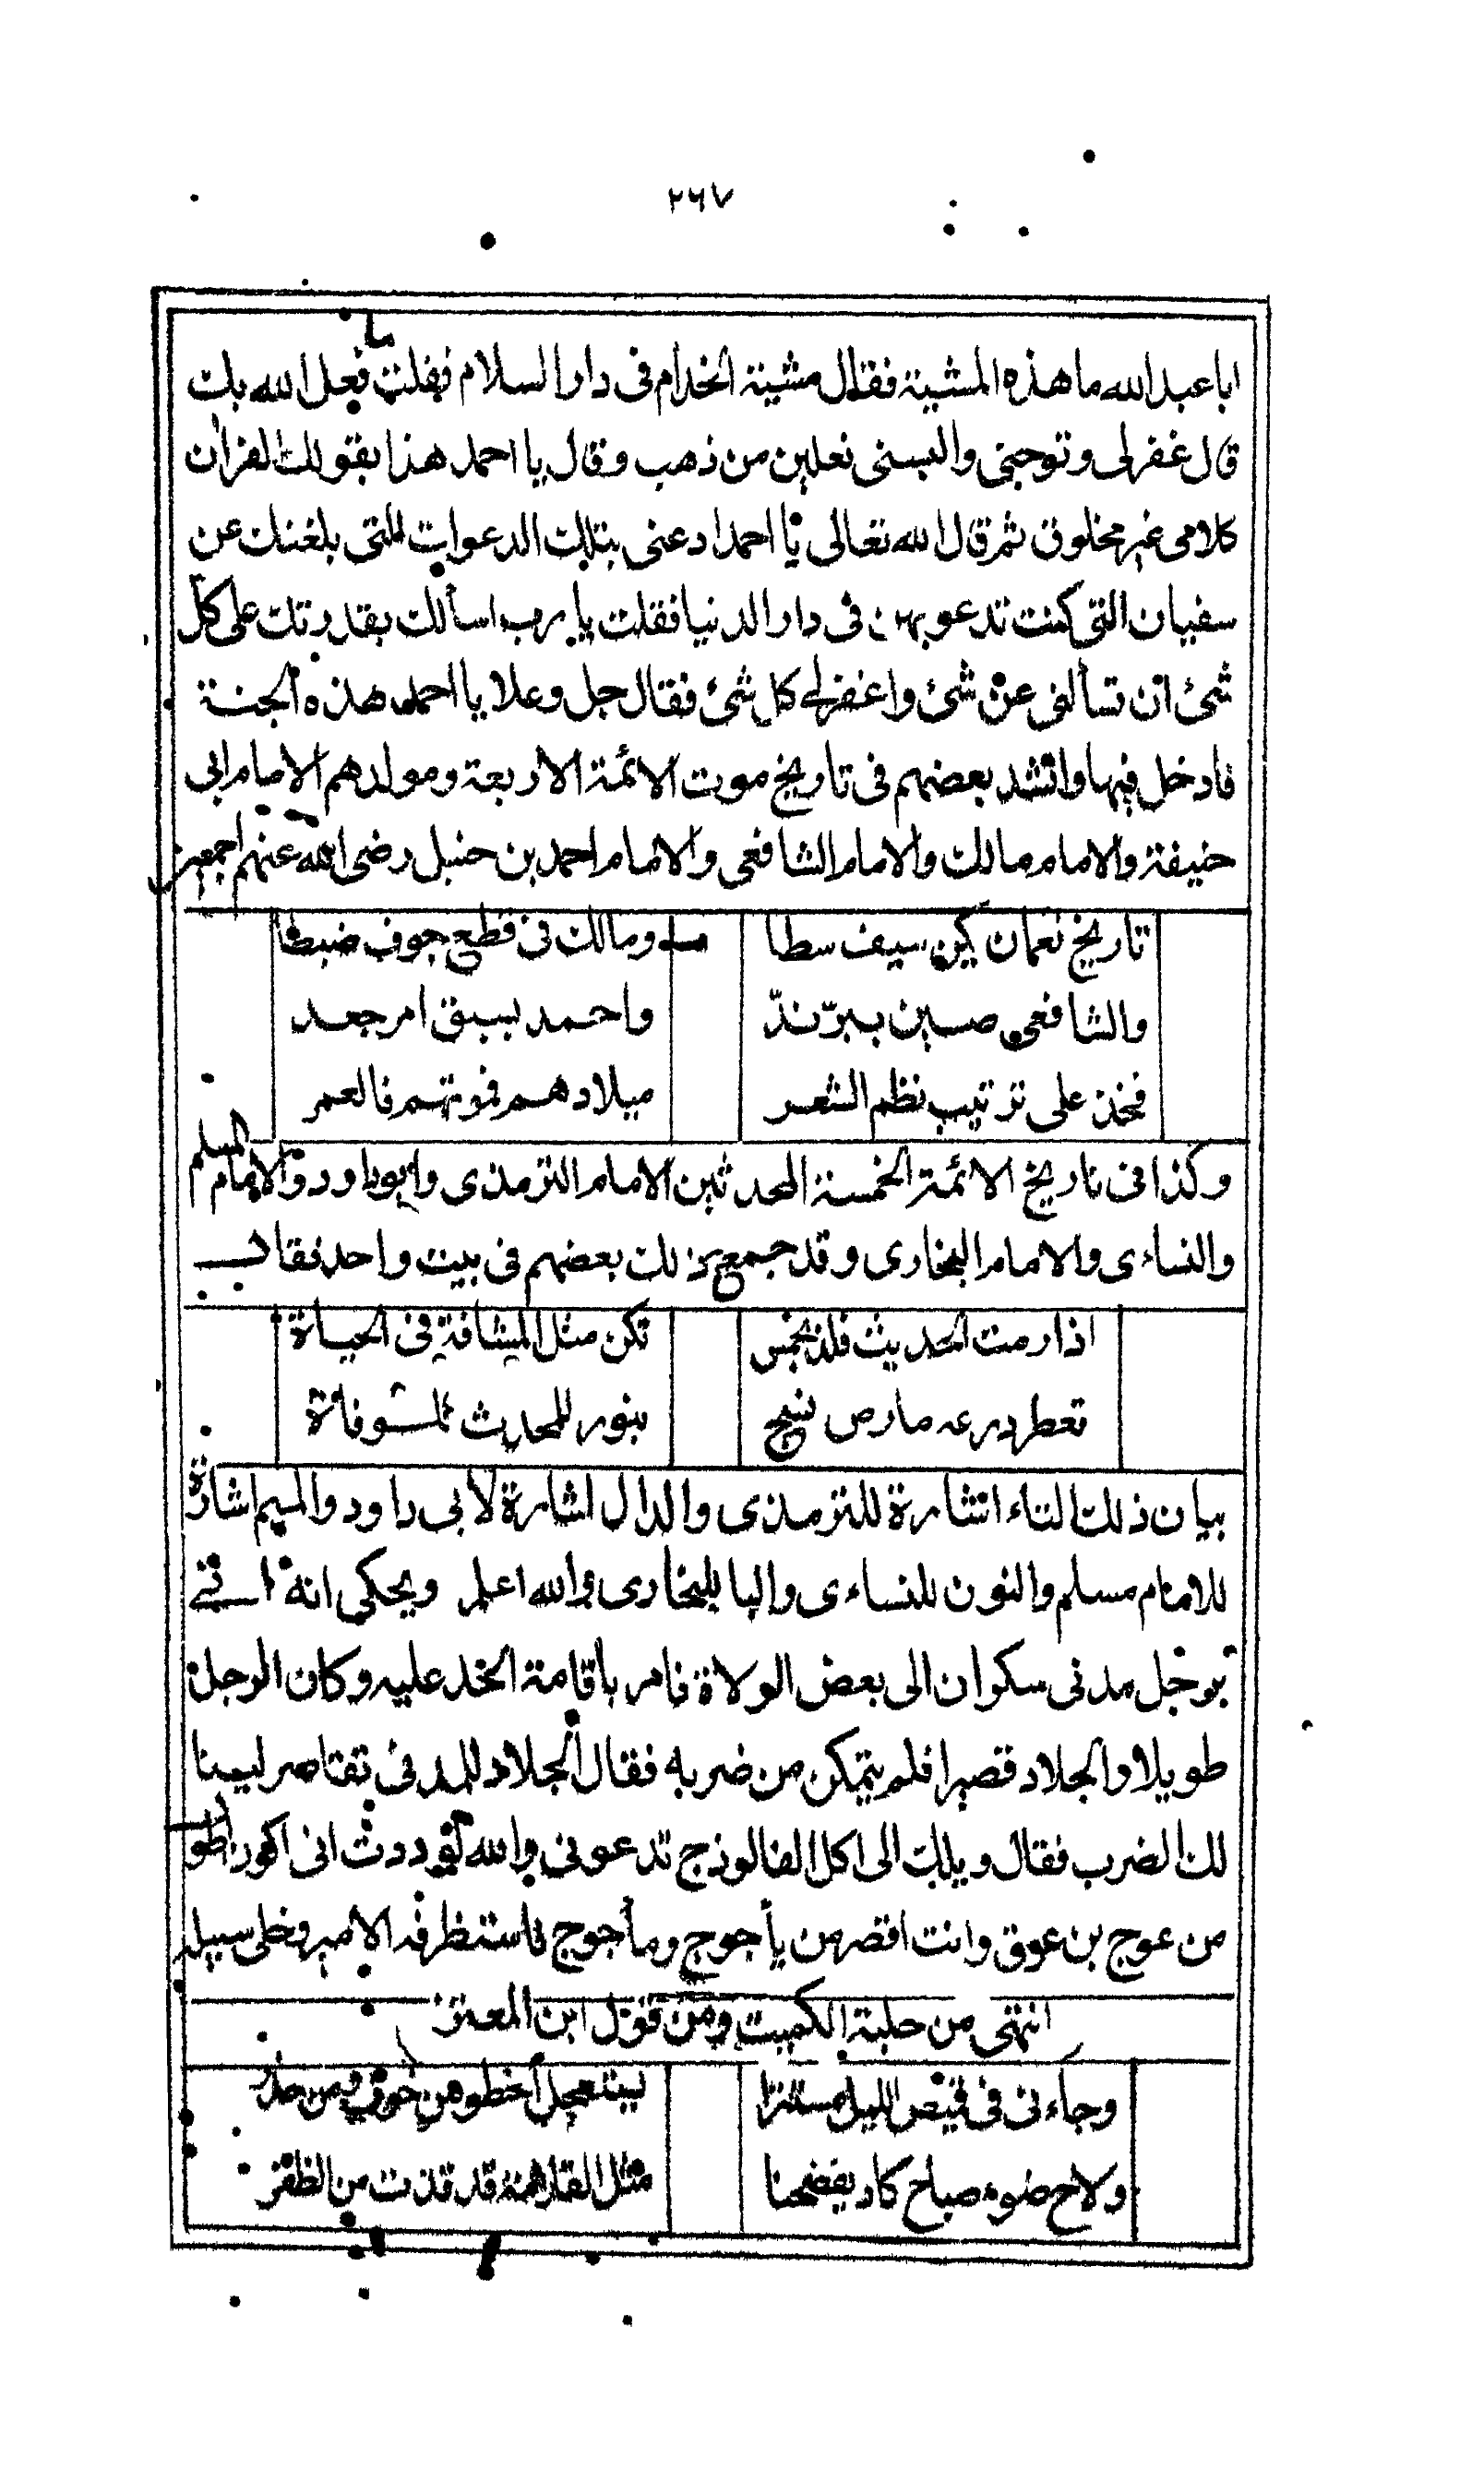 ٢٦٧
ابا عبد الله ما هذه المشية فقال مشية الخدام فى دار السلام فقلت ما فعل الله بك
قال غفر لى وتوجنى والبسنى نعلين من ذهب وقال يا احمد هذا بقولك القران
كلامى غير مخلوق ثم قال الله تعالى يا احمد ادعنى بتلك الدعوات التى بلغتك عن
سفيان التى كنت تدعو بهن فى دار الدنيا فقلت يا رب اسألك بقدرتك على كل
شئ ان تسألنى عن شئ واغفر لى كل شئ فقال جل وعلا يا احمد هذه الجنة
فادخل فيها وانشد بعضهم فى تاريخ موت الائمة الاربعة ومولدهم الامام ابى
حنيفة والامام مالك والامام الشافعى والامام احمد بن حنبل رضى الله عنهم اجمعين
تاريخ نعمان يكن سيف سطا ومالك فى قطع جوف ضبطا
والشافعى صين ببرّ ندّ واحمد بسبق امر جعد
على ترتيب نظم الشعر ميلادهم فموتهم فالعمر
وكذا فى تاريخ الائمة الخمسة المحدثين الامام الترمذى وابو داود والامام المسلم
والنساءى والامام البخارى وقد جمع ذلك بعضهم فى بيت واحد فقال
اذا رمت الحديث فلذ بخمس تكن مثل فى الحياة
تعطر درعه مارص نسج بنور للمحدث
بيان ذلك التاء اشارة للترمذى والدال اشارة لابى داود والميم اشارة
للامام مسلم والنون للنساءى والبا للبخارى والله اعلم ويحكى انه اتى
برجل مدنى سكران الى بعض الولاة فامر باقامة الحد عليه وكان الرجل
طويلا والجلاد قصيرا فلم يتمكن من ضربه فقال الجلاد للمدنى تقاصر ليمنا
لك الضرب فقال ويلك الى اكل الفالوذج تدعونى والله لوددت انى اكون اطول
من عوج بن عوق وانت اقصر من يأجوج ومأجوج فاستظرفه الامير وخلى سبيله
انتهى من حلبة الكميت ومن قول ابن المعتز
وجاءنى فى قميص الليل مستترا يستعجل الخطو من خوف ومن حذر
ولاح ضوء صباح كاد يفضحنا مثل القلامة قد قدت من الظفر